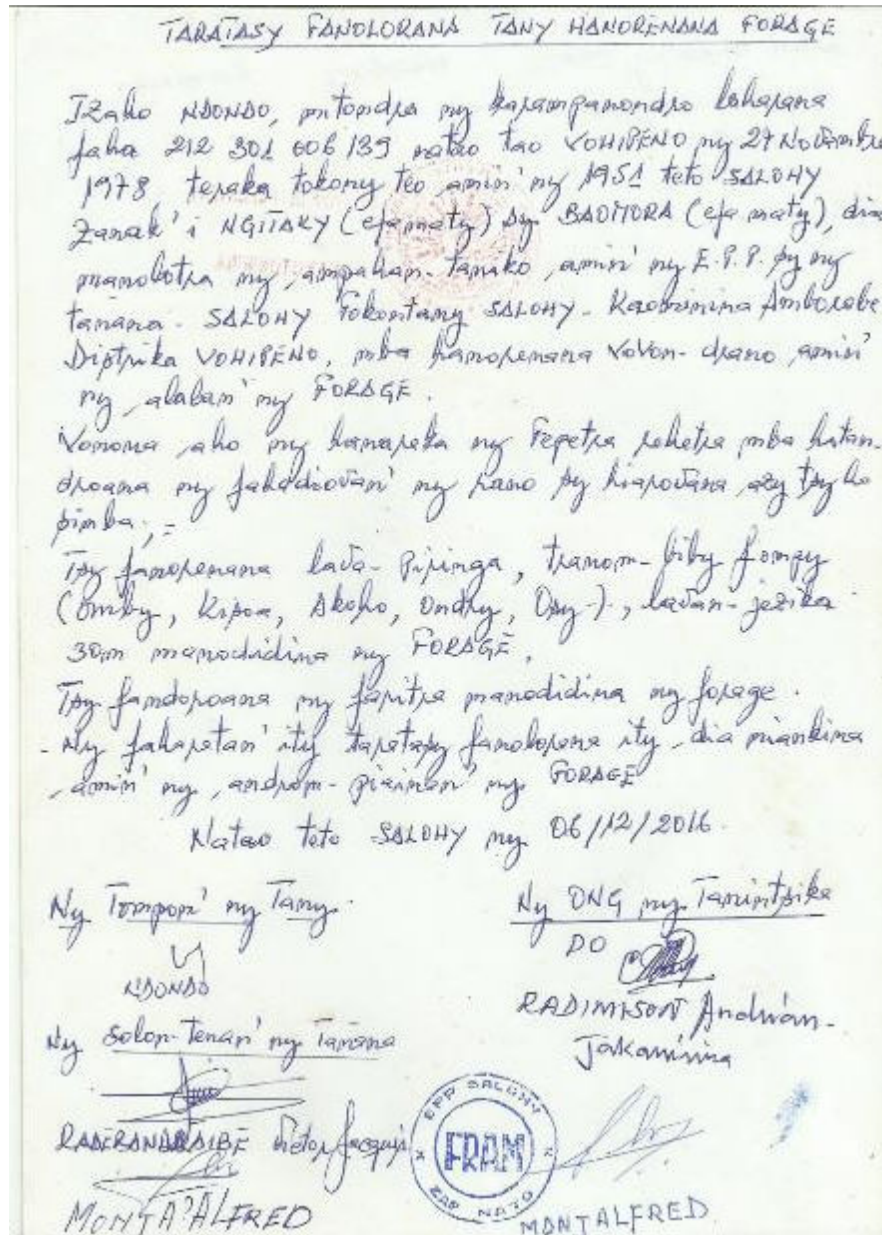 TARATASY FANOLORANA TANY HANORENANA FORAGE
Izaho NDONDO, mitondra ny karampanondro laharana
faha 212 301 006 139 natao tao VOHIPENO ny 27 Novembre
1978 teraka tokony teo amin' ny 1951 teto SALOHY
Zanak' i NGITAKY (efa maty) sy BAOMORA (efa maty), dia
manolotra ny ampahan-tanako amin' ny E.P.P. sy ny
tanana - SALOHY Fokontany SALOHY - Kaominina Amborobe
Distrika VOHIPENO, mba hanorenana vovon-drano amin'
ny alalan' ny FORAGE.
Vonona aho ny hanaraka ny fepetra rehetra mba hatan-
troana ny fahadiovan' ny rano sy hiarovana azy tsy ho
simba ; -
Tsy fanorenana lava-piringa, tranom-biby fiompy
(Omby, Kisoa, Akoho, Ondry, Osy-), lavan-jezika
30m manodidina ny FORAGE,
Tsy fandoroana ny faritra manodidina ny forage.
- Ny faharetan' ity taratasy fanolorana ity dia miankina
amin' ny androm-piainan' ny FORAGE
Natao teto SALOHY ny 06/12/2016.
Ny Tompon' ny Tany.
NDONDO
Ny ONG ny Tanintsika
DO
RADIMISON Andrian-
Jakaminina
Ny Solon-tenan' ny Tanana
Victor Jacquis
MONJA ALFRED
EPP SALOHY
FRAM
ZAP NATO
MONJALFRED